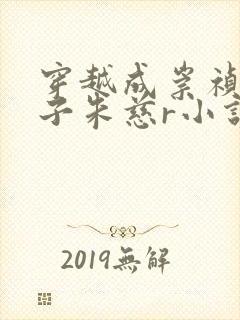 穿越成崇禎
子朱慈r小說
2019無解